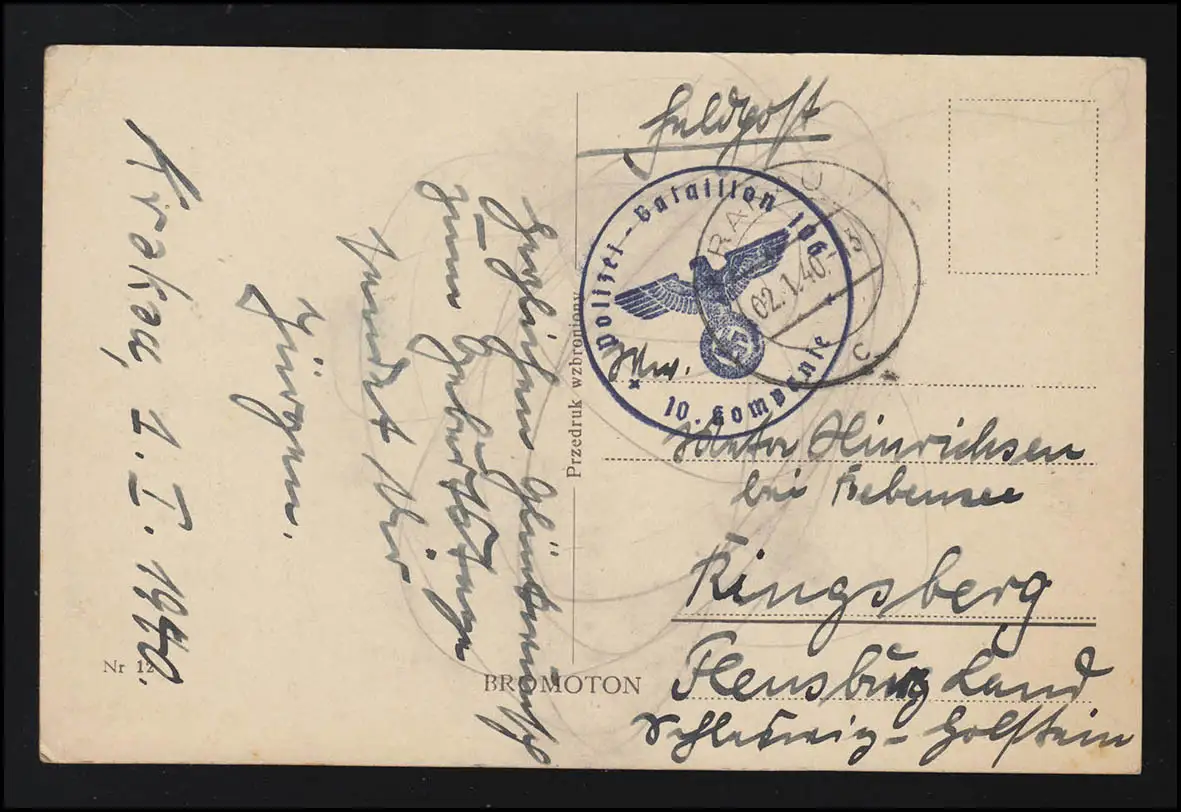 Krakau, 1. I. 1940.
Herzlichen Glückwunsch
zum Geburtstage
sendet Dir
Jürgen.
Nr 12
BROMOTON
Przedruk wzbroniony
Feldpost
Polizei-Bataillon 106
10. Kompanie
02.1.40.
c
Hinrichsen
bei
Ringsberg
Flensburg Land
Schleswig-Holstein